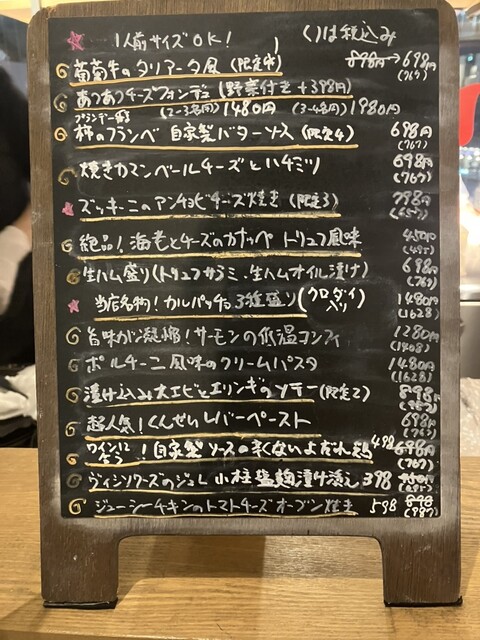 1人前サイズOK! ( )は税込み
葡萄牛のタリアータ風(限定4) 898円→698円(767)
あつあつチーズフォンデュ(野菜付き+398円)
(2~3名用)1480円 (3~4名用)1980円
柿のフランベ 自家製バターソース(限定4) 698円(767)
焼きカマンベールチーズとハチミツ 698円(767)
ズッキーニのアンチョビチーズ焼き(限定3)
絶品!海老とチーズのカナッペ トリュフ風味 450円(495)
生ハム盛り(トリュフサラミ、生ハムオイル漬け) 698(767)
当店名物!カルパッチョ3種盛り(クロダイ入り) 1480円(1628)
旨味が凝縮!サーモンの低温コンフィ 1280円(1408)
ポルチーニ風味のクリームパスタ 1480円(1628)
漬け込み大エビとエリンギのソテー(限定2) 898円
超人気!くんせいレバーペースト 698円(767)
ワインに合う!自家製ソースの辛くないよだれ鶏 498 698円(767)
ヴィシソワーズのジュレ 小柱塩麹漬け添え 398
ジューシーチキンのトマトチーズオーブン焼き 598 898(987)